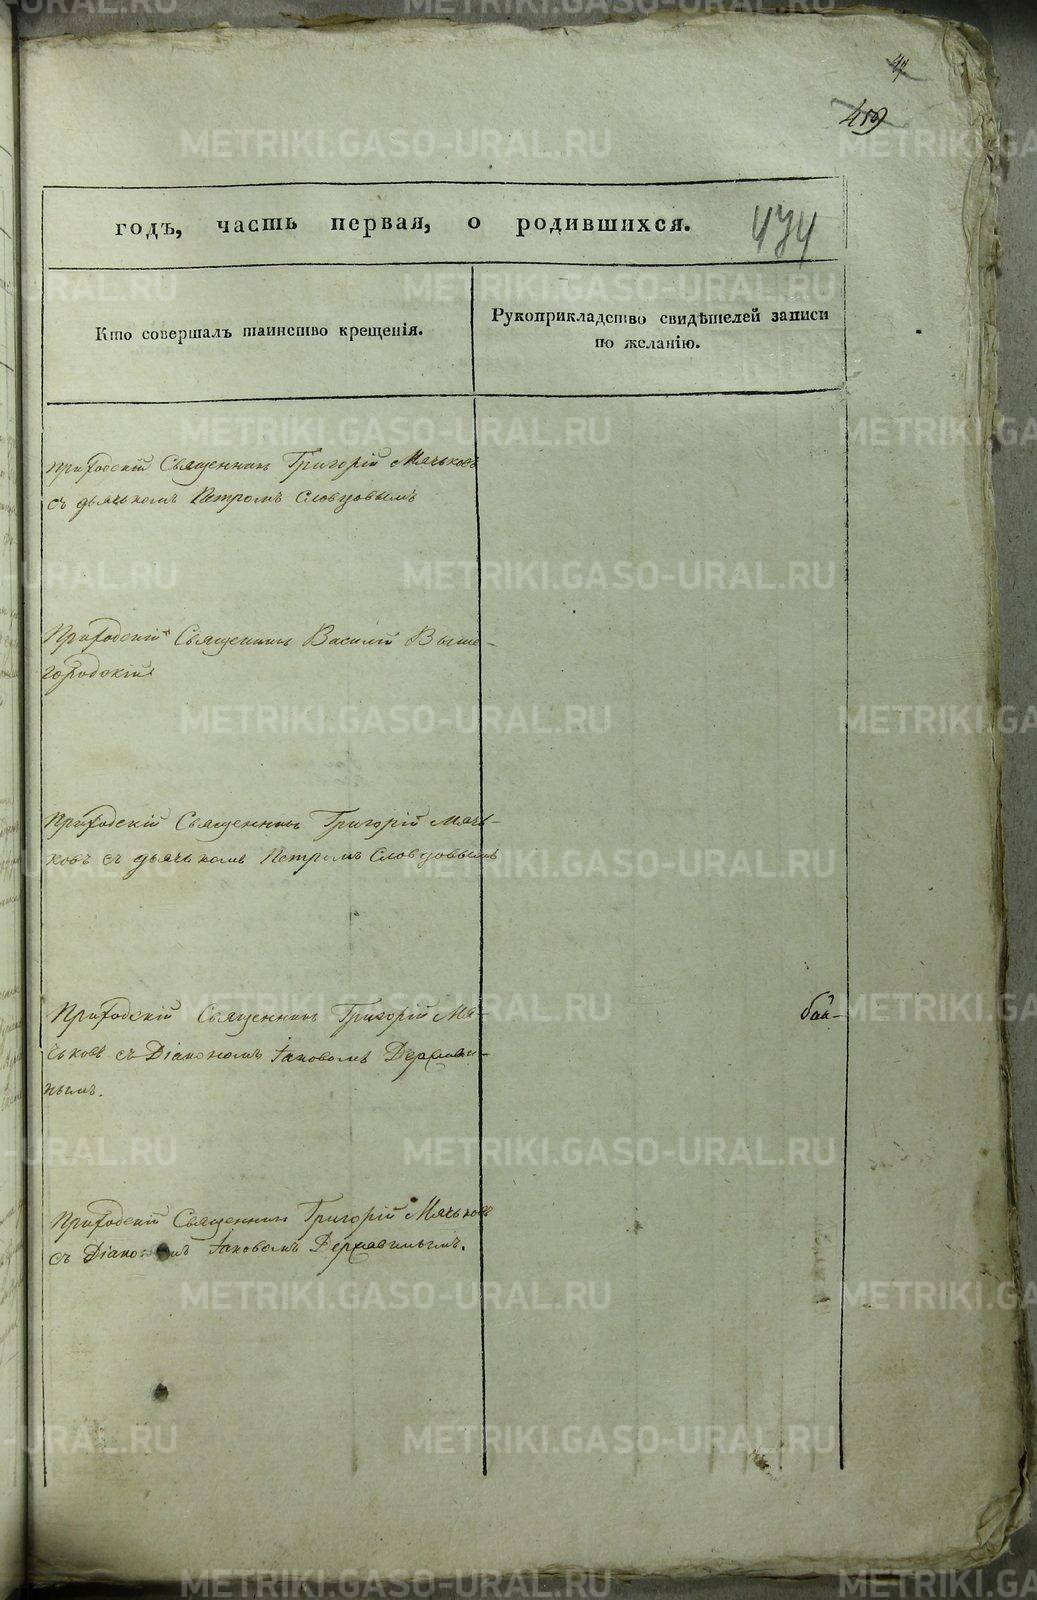 459
годъ, часть первая, о родившихся.
474
Кто совершалъ таинство крещенія.
Рукоприкладство свидѣтелей записи
по желанію.
Приходскій Священникъ Григорій Мячьковъ
съ дьячькомъ Петромъ Словцовымъ
Приходскій Священникъ Василій Выше-
городскій
Приходскій Священникъ Григорій Мячь-
ковъ съ дьячькомъ Петромъ Словцовымъ
Приходскій Священникъ Григорій Мя-
чьковъ съ Діакономъ Іаковомъ Держави-
нымъ.
Приходскій Священникъ Григорій Мячьковъ
съ Діакономъ Іаковомъ Державинымъ.
METRIKI.GASO-URAL.RU